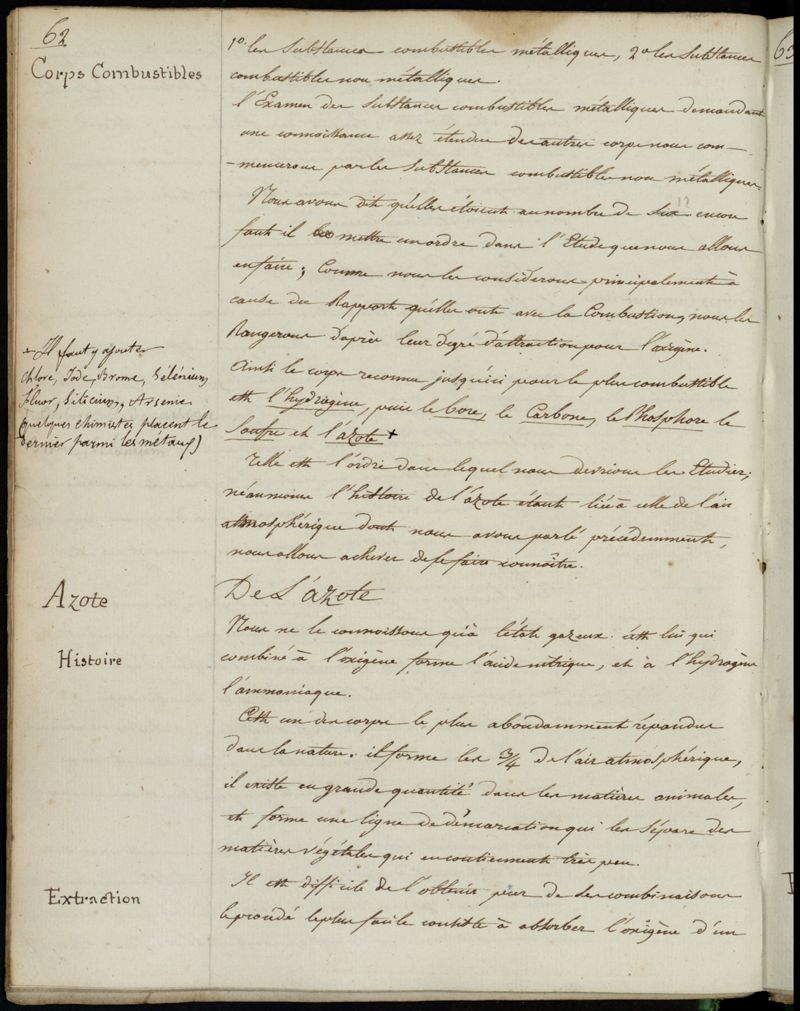 62
Corps Combustibles
1o. les substances combustibles métalliques, 2o les substances
combustibles non métalliques.
l'Examen des substances combustibles métalliques demandant
une connoissance assez étendue des autres corps nous com-
-mencerons par les substances combustibles non métalliques.
Nous avons dit qu'elles étoient au nombre de six encore
faut il mettre un ordre dans l'Etude que nous allons
en faire; Comme nous les considerons principalement à
cause du Rapport qu'elles ont avec la Combustion, nous les
Rangerons d'après leur degré d'attraction pour l'oxigène.
Ainsi le corps reconnu jusqu'ici pour le plus combustible
est l'hydrogène, puis le bore, le Carbone, le Phosphore le
Soufre et l'azote +
+ Il faut y ajouter
Chlore, Iode, Brome, Sélénium,
Fluor, Silicium, Arsenic
quelques chimistes placent le
dernier parmi les métaux)
Telle est l'ordre dans lequel nous devrions les Etudier;
néanmoins l'histoire de l'azote étant liée à celle de l'air
atmosphérique dont nous avons parlé précédemment,
nous allons achever de le faire connoître.
Azote
De L'azote
Histoire
Nous ne le connoissons qu'à l'état gazeux. c'est lui qui
combiné à l'oxigène forme l'acide nitrique, et à l'hydrogène
l'ammoniaque.
C'est un des corps le plus abondamment répandus
dans la nature. il forme les 3/4 de l'air atmosphérique,
il existe en grande quantité dans les matières animales,
et forme une ligne de démarcation qui les sépare des
matières végétales qui en contiennent très peu.
Extraction
Il est difficile de l'obtenir pur de ses combinaisons
le procédé le plus facile consiste à absorber l'oxigène d'un